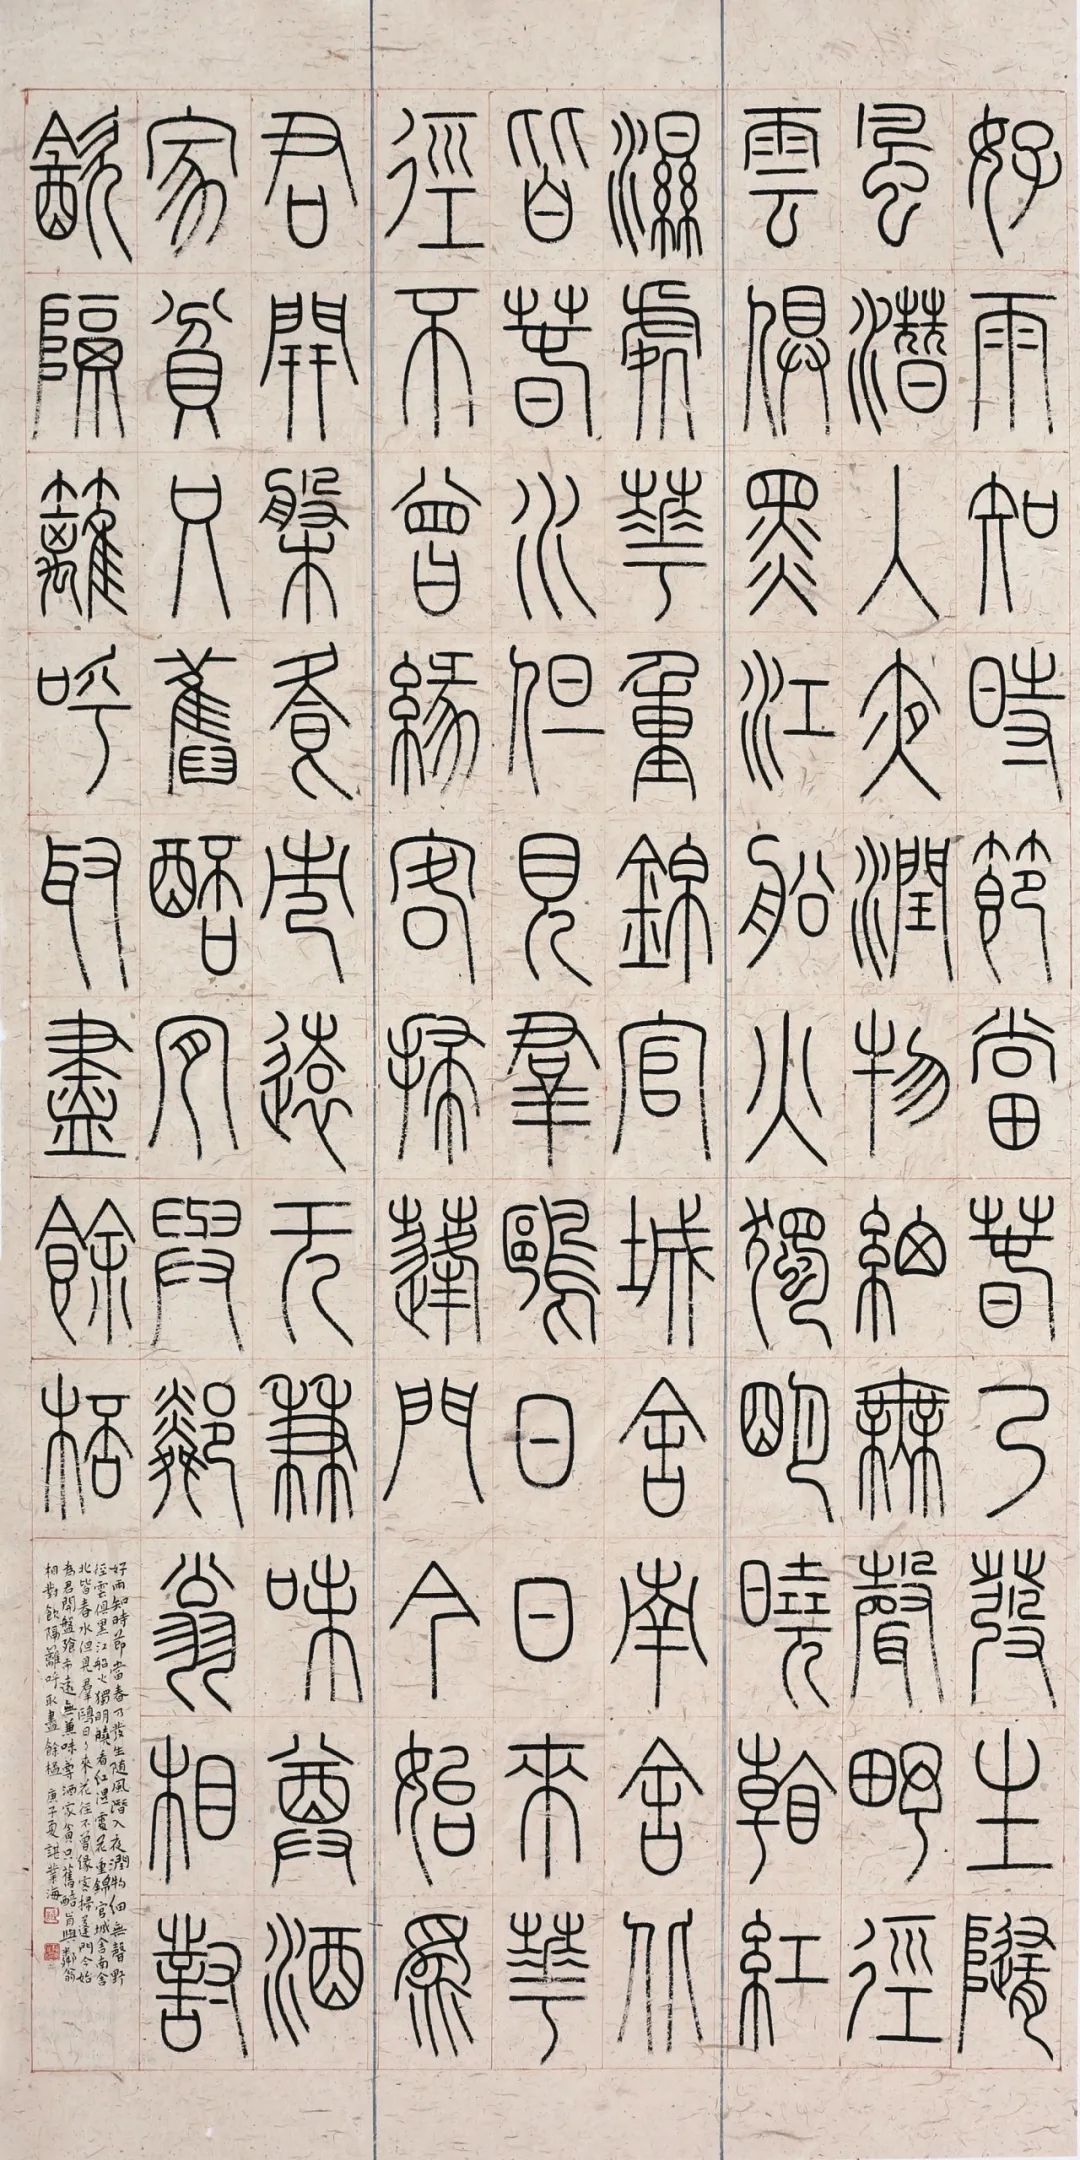 好雨知時節當春乃發生隨
風潛入夜潤物細無聲野徑
雲俱黑江船火獨明曉看紅
濕處華重錦官城舍南舍北
皆春水但見羣鷗日日來華
徑不曾緣客掃蓬門今始為
君開槃飧市遠无兼味尊酒
家貧只舊醅肯與鄰翁相對
飲隔籬呼取盡餘桮
好雨知時節當春乃發生随風潛入夜潤物細無聲野
徑雲俱黑江船火獨明曉看紅濕處花重錦官城舍南舍
北皆春水但見羣鷗日々來花徑不曾緣客掃蓬門今始
為君開盤飧市遠無兼味尊酒家貧只舊醅肯與鄰翁
相對飲隔籬呼取盡餘桮 庚子夏諶業海